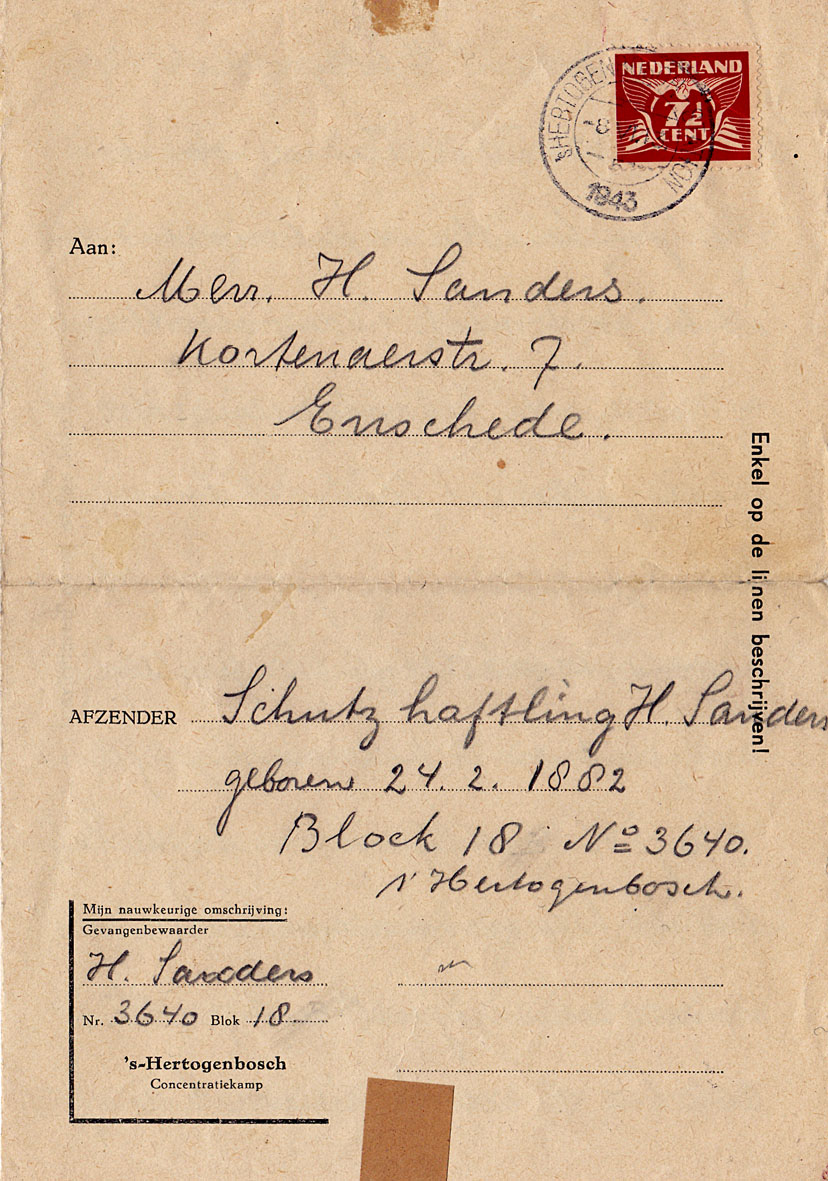 NEDERLAND
7½
CENT
'sHERTOGEN
1943
Aan:
Mevr. H. Sanders.
Kortenaerstr. 7.
Enschede.
Enkel op de lijnen beschrijven!
AFZENDER Schutzhaftling H. Sanders
geboren 24. 2. 1882
Block 18 No 3640.
s'Hertogenbosch.
Mijn nauwkeurige omschrijving:
Gevangenbewaarder
H. Sanders
Nr. 3640 Blok 18
's-Hertogenbosch
Concentratiekamp